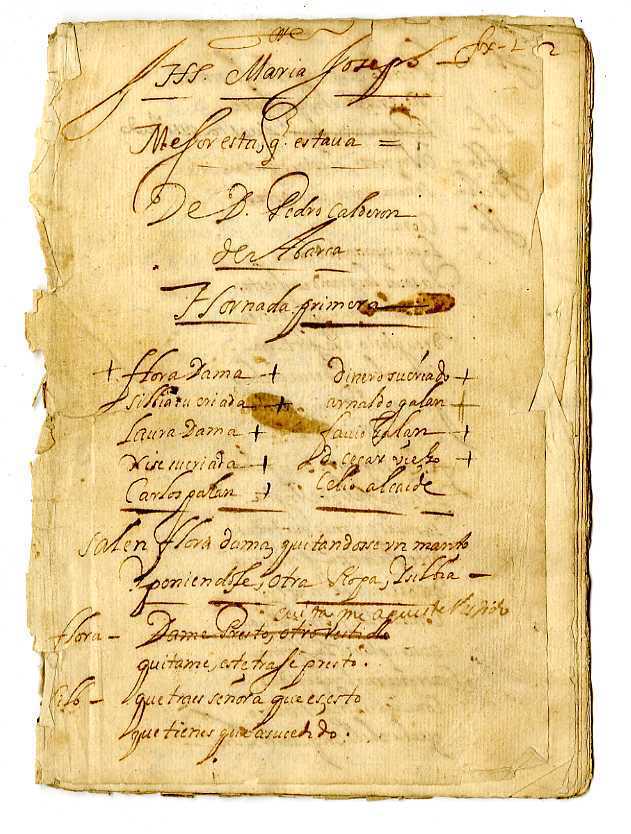 JHS. Maria Joseph
Mejor esta, q. estava =
De D. Pedro Calderon
de la Barca
Jornada primera
+ flora Dama + dinero su criado +
silbia su criada + arnaldo galan +
Laura Dama + fauio galan +
Nise su criada + d. cesar viejo +
Carlos galan + Celio alcaide
salen flora dama, quitandose un manto
y poniendole, otra Ropa, y silbia –
quitame aqueste bestido
flora – Dame Presto, otro bestido
quitame, este traje presto.
silb – que traes señora que es esto
que tienes que a sucedido.